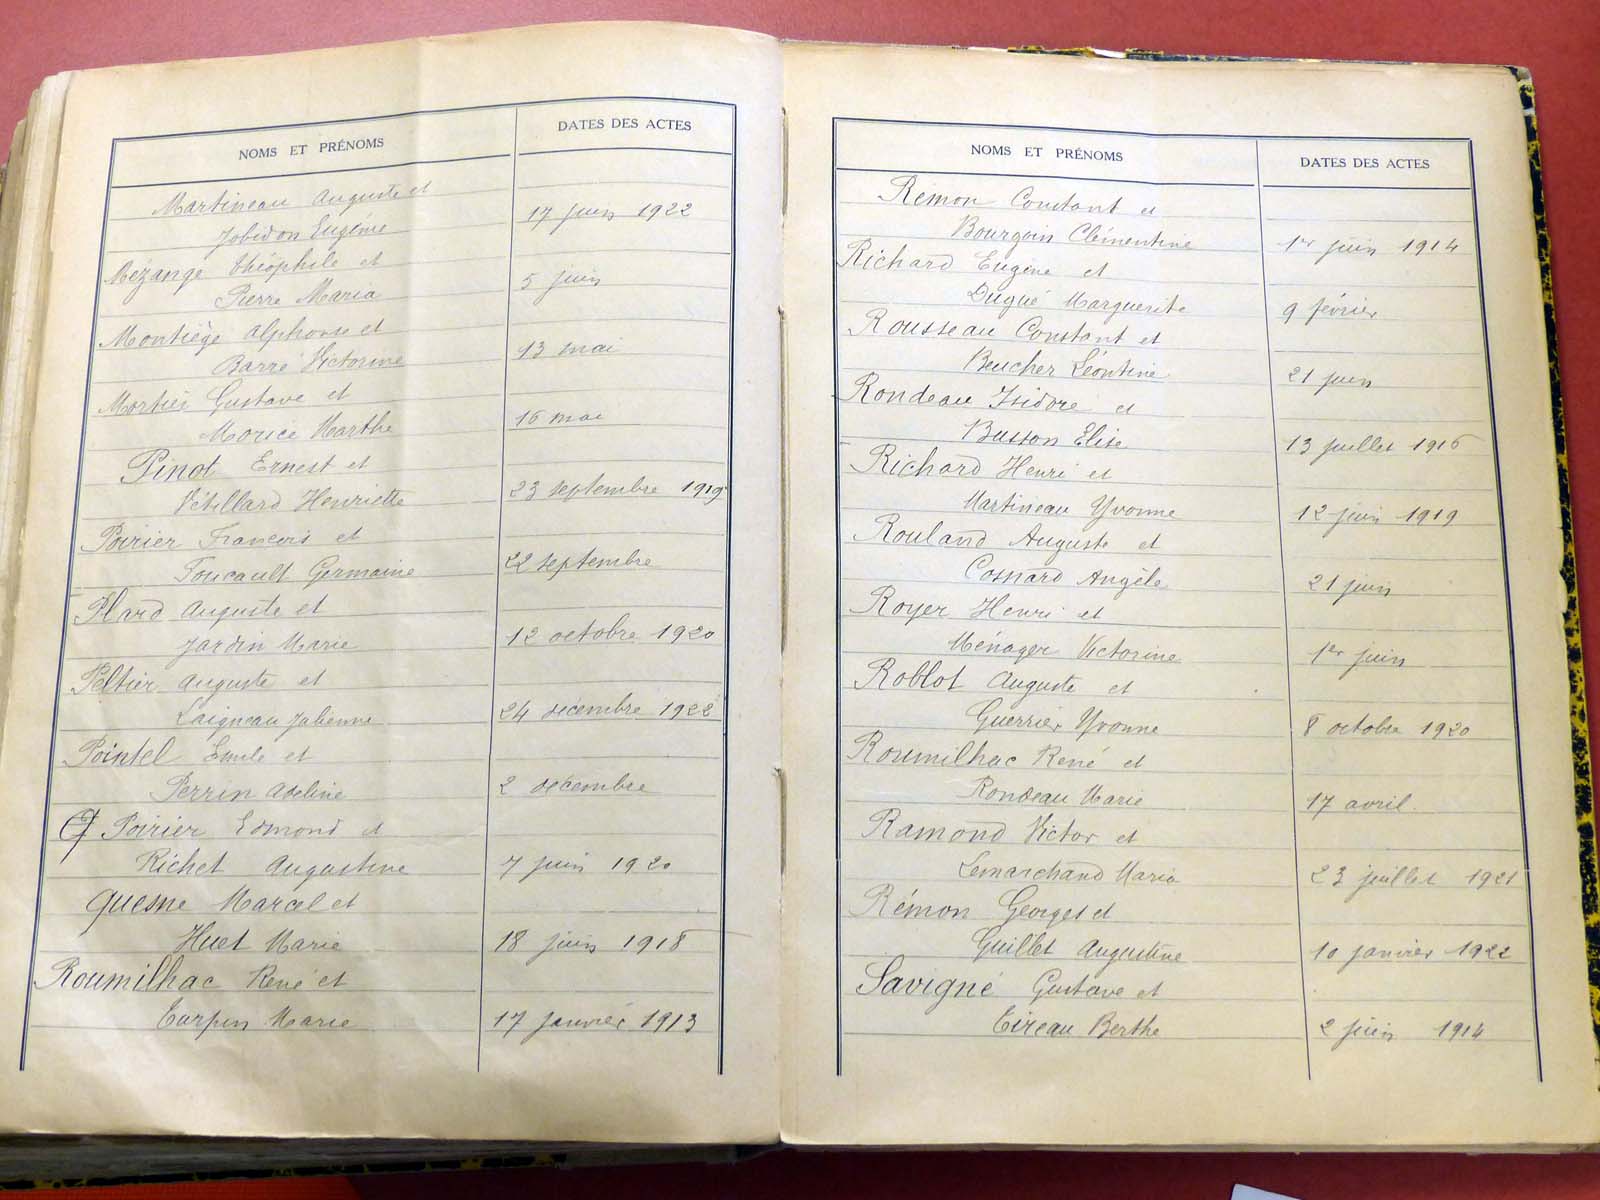 NOMS ET PRÉNOMS DATES DES ACTES
Martineau Auguste et
Jobidon Eugénie 17 juin 1922
Mézange Théophile et
Pierre Maria 5 juin
Montiège Alphonse et
Barré Victorine 13 mai
Mortier Gustave et
Morice Marthe 16 mai
Pinot Ernest et
Vétillard Henriette 23 septembre 1919
Poirier François et
Foucault Germaine 22 septembre
Plard Auguste et
Jardin Marie 12 octobre 1920
Peltier Auguste et
Laigneau Julienne 24 décembre 1922
Pointel Emile et
Perrin Adeline 2 décembre
Poirier Edmond et
Richet Augustine 7 juin 1920
Quesne Marcel et
Huet Marie 18 juin 1918
Roumilhac René et
Turpin Marie 17 janvier 1913
NOMS ET PRÉNOMS DATES DES ACTES
Rémon Constant et
Bourgoin Clémentine 1er juin 1914
Richard Eugène et
Dugué Marguerite 9 février
Rousseau Constant et
Beucher Léontine 21 juin
Rondeau Isidore et
Busson Elise 13 juillet 1916
Richard Henri et
Martineau Yvonne 12 juin 1919
Rouland Auguste et
Cosnard Angèle 21 juin
Royer Henri et
Ménager Victorine 1er juin
Roblot Auguste et
Guerrier Yvonne 8 octobre 1920
Roumilhac René et
Rondeau Marie 17 avril
Ramond Victor et
Lemarchand Maria 23 juillet 1921
Rémon Georges et
Guillet Augustine 10 janvier 1922
Savigné Gustave et
Tireau Berthe 2 juin 1914